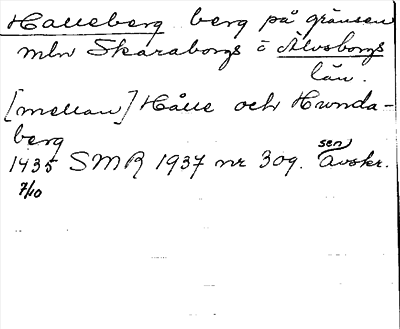 Halleberg berg på gränsen
mln Skaraborgs o Älvsborgs
län.
[mellan] Hålle och Hunda-
berg
1435 SMR 1937 nr 309. sen Avskr.
7/10